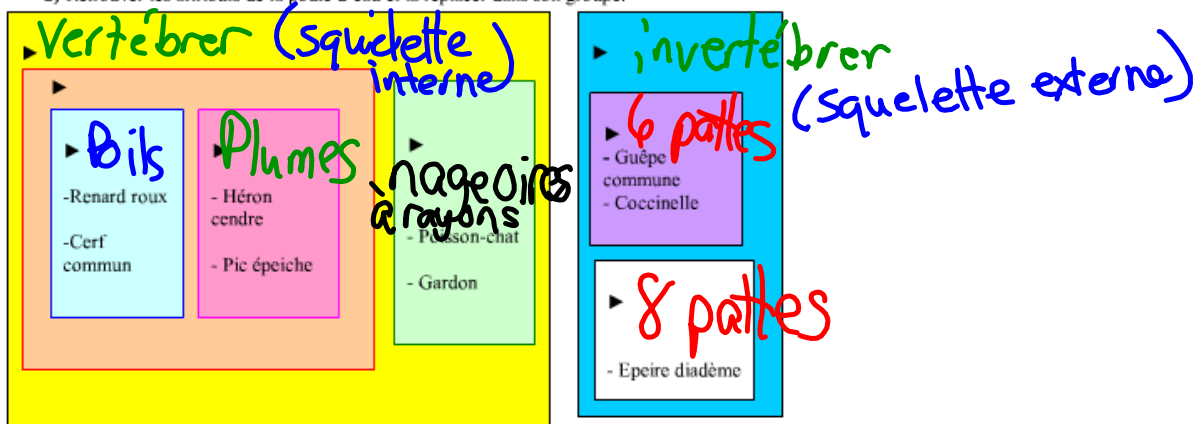 Vertébrer (squelette
interne)
Poils
-Renard roux
-Cerf
commun
Plumes
- Héron
cendre
- Pic épeiche
nageoires
à rayons
- Poisson-chat
- Gardon
invertébrer
(squelette externe)
6 pattes
- Guêpe
commune
- Coccinelle
8 pattes
- Epeire diadème